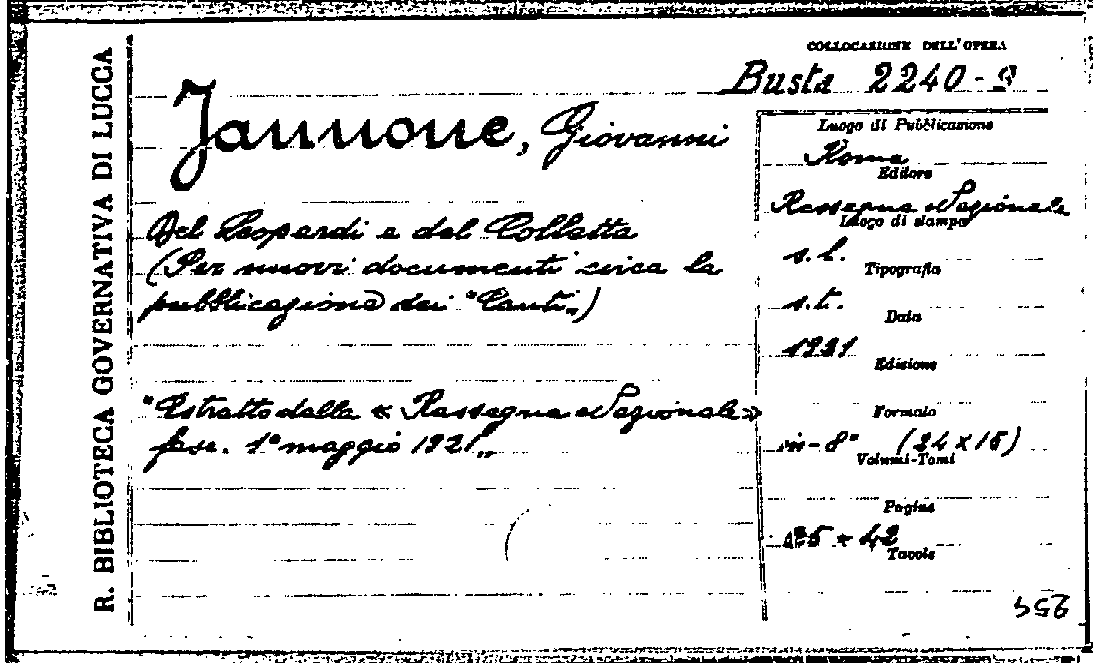 R. BIBLIOTECA GOVERNATIVA DI LUCCA
COLLOCAZIONE DELL'OPERA
Busta 2240-9
Jannone, Giovanni
Del Leopardi e del Colletta
(Per nuovi documenti circa la
pubblicazione dei "Canti„)
"Estratto dalla « Rassegna Nazionale»
fasc. 1° maggio 1921„
Luogo di Pubblicazione
Roma
Editore
Rassegna Nazionale
Luogo di stampa
s. l.
Tipografia
s. t.
Data
1921
Edizione
Formato
in-8° (24 x 16)
Volumi-Tomi
Pagine
42
Tavole
254